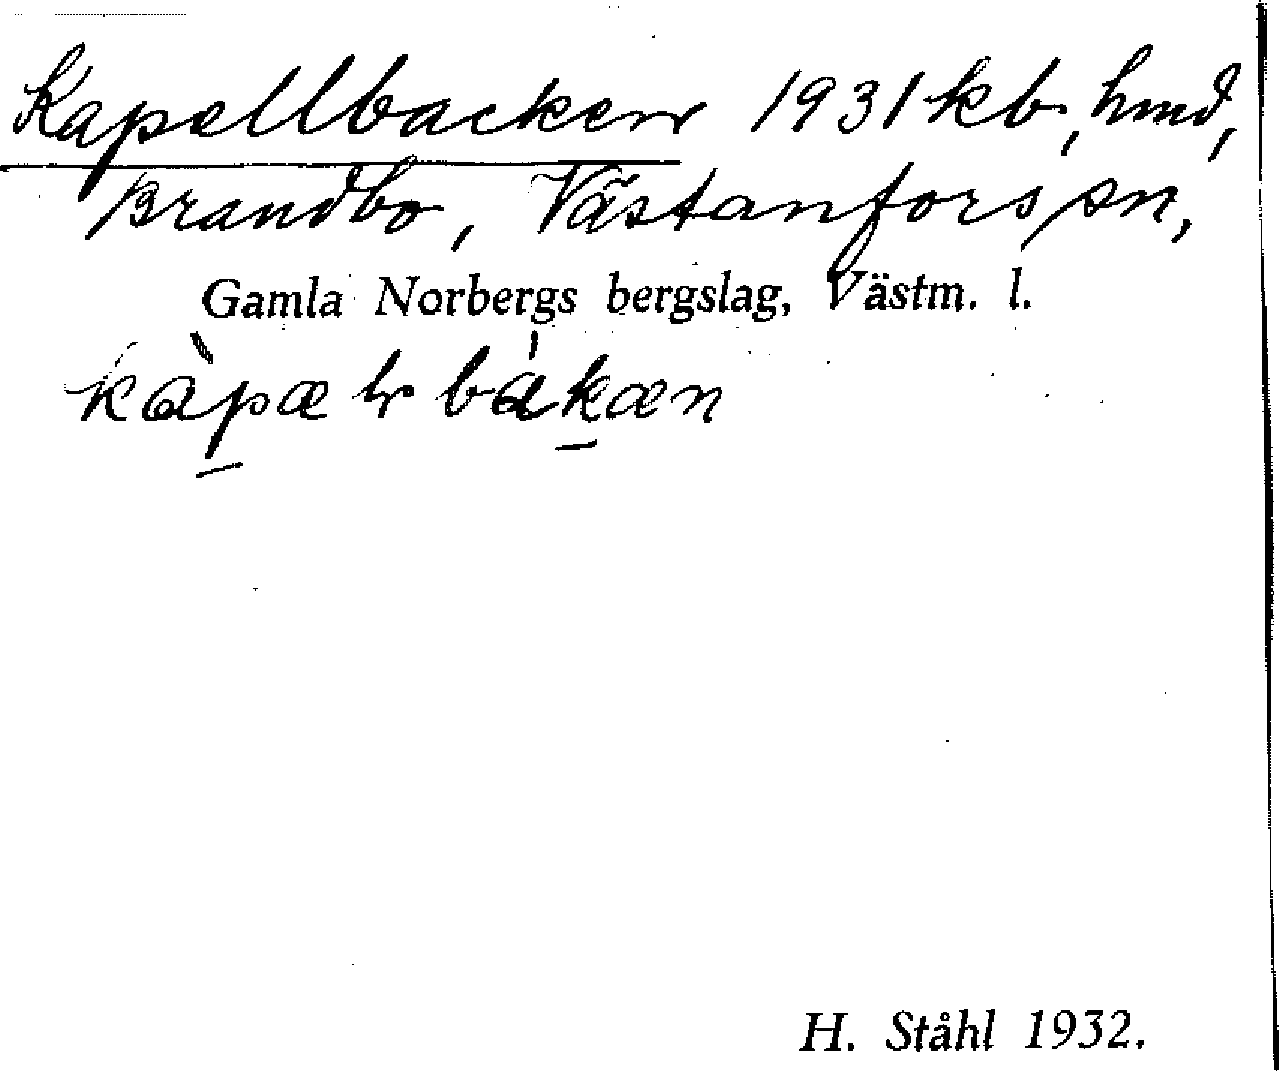 Kapellbacken 1931 kb, hmd,
Brandbo, Västanfors sn,
Gamla Norbergs bergslag, Västm. l.
kàpæl bákæn
H. Ståhl 1932.